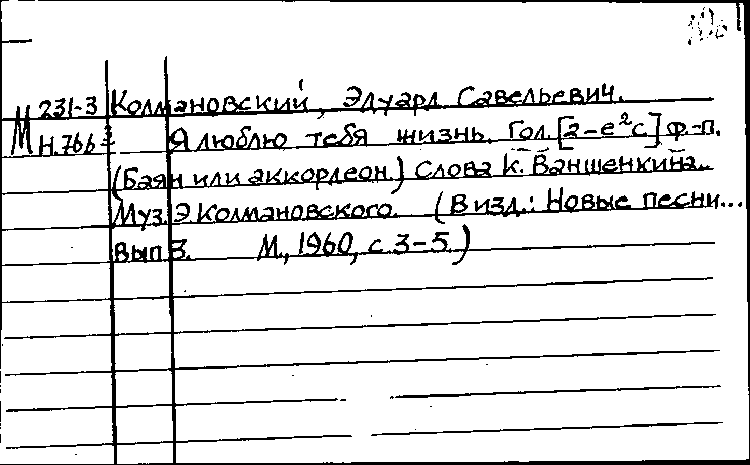 М 231-3 Колмановский, Эдуард Савельевич.
Н.766 Я люблю тебя жизнь. Гол. [a-e²c] ф-п.
(Баян или аккордеон.) Слова К. Ваншенкина.
Муз. Э Колмановского. (В изд.: Новые песни...
Вып 3. М., 1960, с 3-5.)